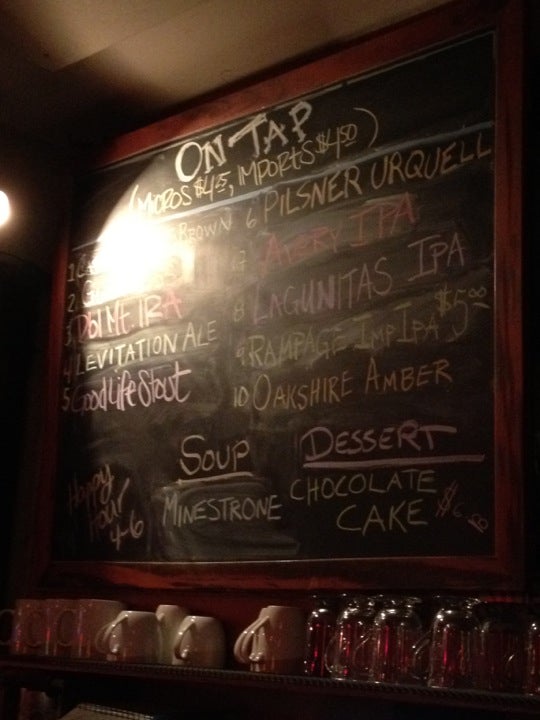 ON TAP
(MICROS $4.25, IMPORTS $4.50)
1 BROWN
2
3 Dbl Mt. IRA
4 LEVITATION ALE
5 Good Life Stout
6 PILSNER URQUELL
7 AVERY IPA
8 LAGUNITAS IPA
9 RAMPAGE IMP IPA $5.00
10 OAKSHIRE AMBER
Happy
Hour
4-6
SOUP
MINESTRONE
DESSERT
CHOCOLATE
CAKE $6.00